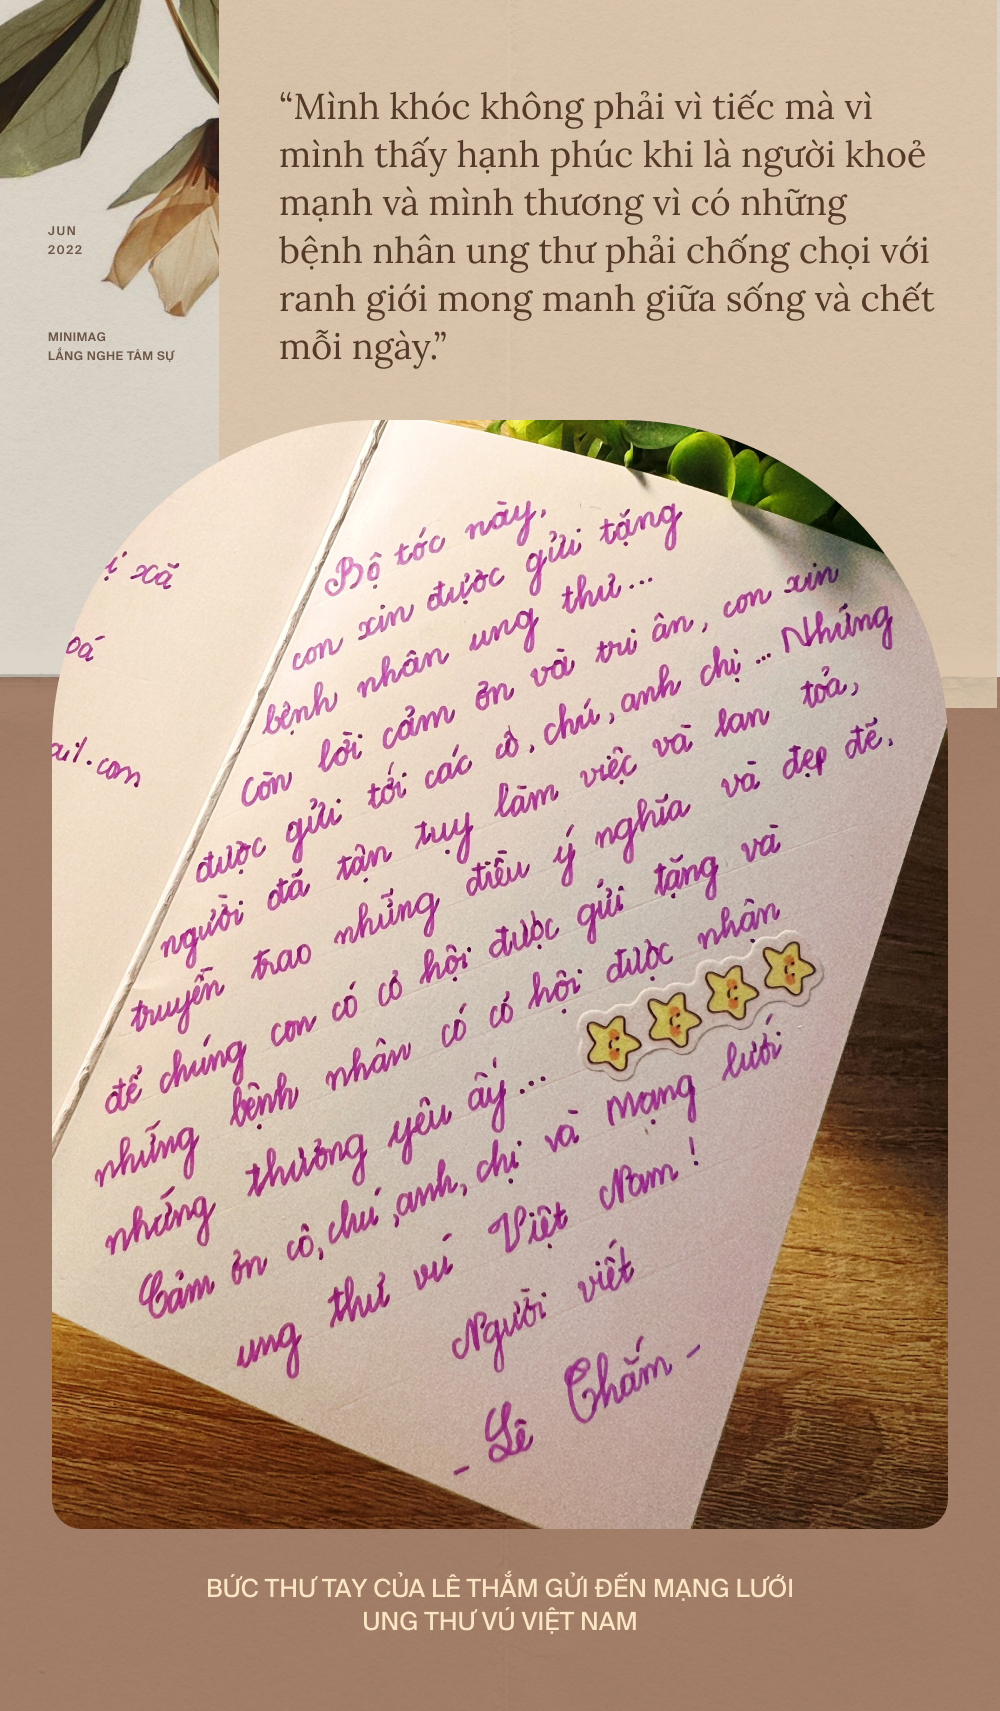 “Mình khóc không phải vì tiếc mà vì
mình thấy hạnh phúc khi là người khoẻ
mạnh và mình thương vì có những
bệnh nhân ung thư phải chống chọi với
ranh giới mong manh giữa sống và chết
mỗi ngày.”
JUN
2022
MINIMAG
LẮNG NGHE TÂM SỰ
xã
ail.com
Bộ tóc này,
con xin được gửi tặng
bệnh nhân ung thư...
Còn lời cảm ơn và tri ân, con xin
được gửi tới các cô, chú, anh chị... Những
người đã tận tụy làm việc và lan tỏa,
truyền trao những điều ý nghĩa và đẹp đẽ,
để chúng con có cơ hội được gửi tặng và
những bệnh nhân có cơ hội được nhận
những thương yêu ấy...
Cảm ơn cô, chú, anh, chị và Mạng lưới
ung thư vú Việt Nam!
Người viết
- Lê Thắm -
BỨC THƯ TAY CỦA LÊ THẮM GỬI ĐẾN MẠNG LƯỚI
UNG THƯ VÚ VIỆT NAM